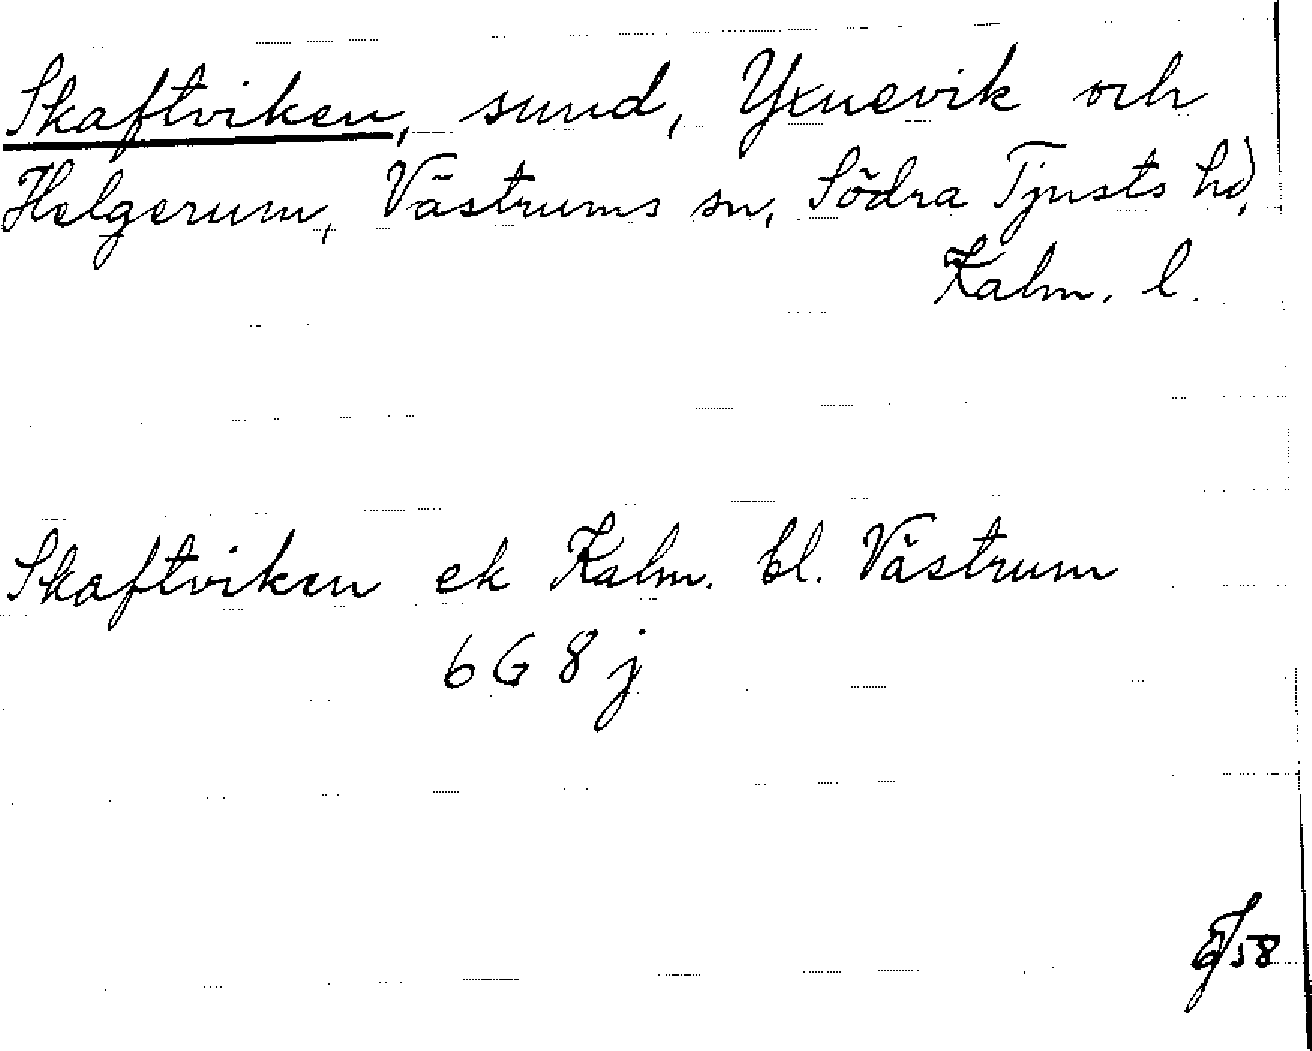 Skaftviken, sund, Yxnevik och
Helgerum, Västrums sn, Södra Tjusts hd,
Kalm. l.
Skaftviken ek Kalm. bl. Västrum
6 G 8 j
58